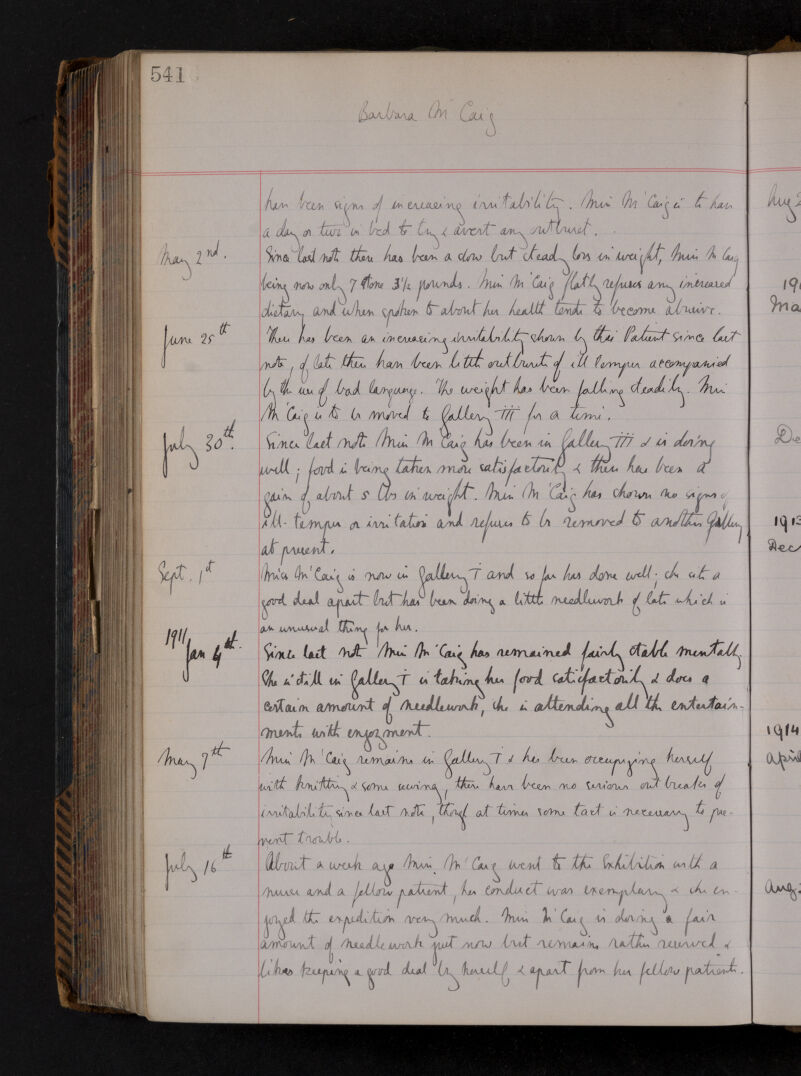 541
Barbara McCaig
have been signs of increasing irritability. Miss McCaig is to have
a day or two in bed to try & avert any outburst.
May 2nd. Since last note there has been a slow but steady loss in weight, Miss McCaig
being now only 7 stone 3½ pounds. Miss McCaig flatly refuses any increased
dietary and when spoken to about her health tends to become abusive.
June 25th There has been an increasing irritability shown by this Patient since last
note, of late there have been little outbursts of ill temper accompanied
by the use of bad language. The weight has been falling steadily. Miss
McCaig is to be moved to Gallery III for a time.
July 30th. Since last note Miss McCaig has been in Gallery III & is doing
well; food is being taken more satisfactorily & there has been a
gain of about 5 lbs in weight. Miss McCaig has shown no signs of
ill-temper or irritation and refuses to be removed to another Gallery
at present.
Sept. 1st Miss McCaig is now in Gallery I and so far has done well; she sits a
good deal apart but has been doing a little needlework of late which is
an unusual thing for her.
1911
Jan 4th. Since last note Miss McCaig has remained fairly stable mentally.
She is still in Gallery I is taking her food satisfactorily & does a
certain amount of needlework, she is attending all the entertain-
ments with enjoyment.
May 7th Miss McCaig remains in Gallery I & has been occupying herself
with knitting & some sewing, there have been no serious outbreaks of
irritability since last note, though at times some tact is necessary to pre-
vent trouble.
July 16th About a week ago Miss McCaig went to the Exhibition with a
nurse and a fellow patient, her conduct was exemplary & she en-
joyed the expedition very much. Miss McCaig is doing a fair
amount of needlework just now but remains rather reserved &
likes keeping a good deal by herself & apart from her fellow patients.
Aug 2
191
Ma
De
1913
Dec
1914
April
Aug 2